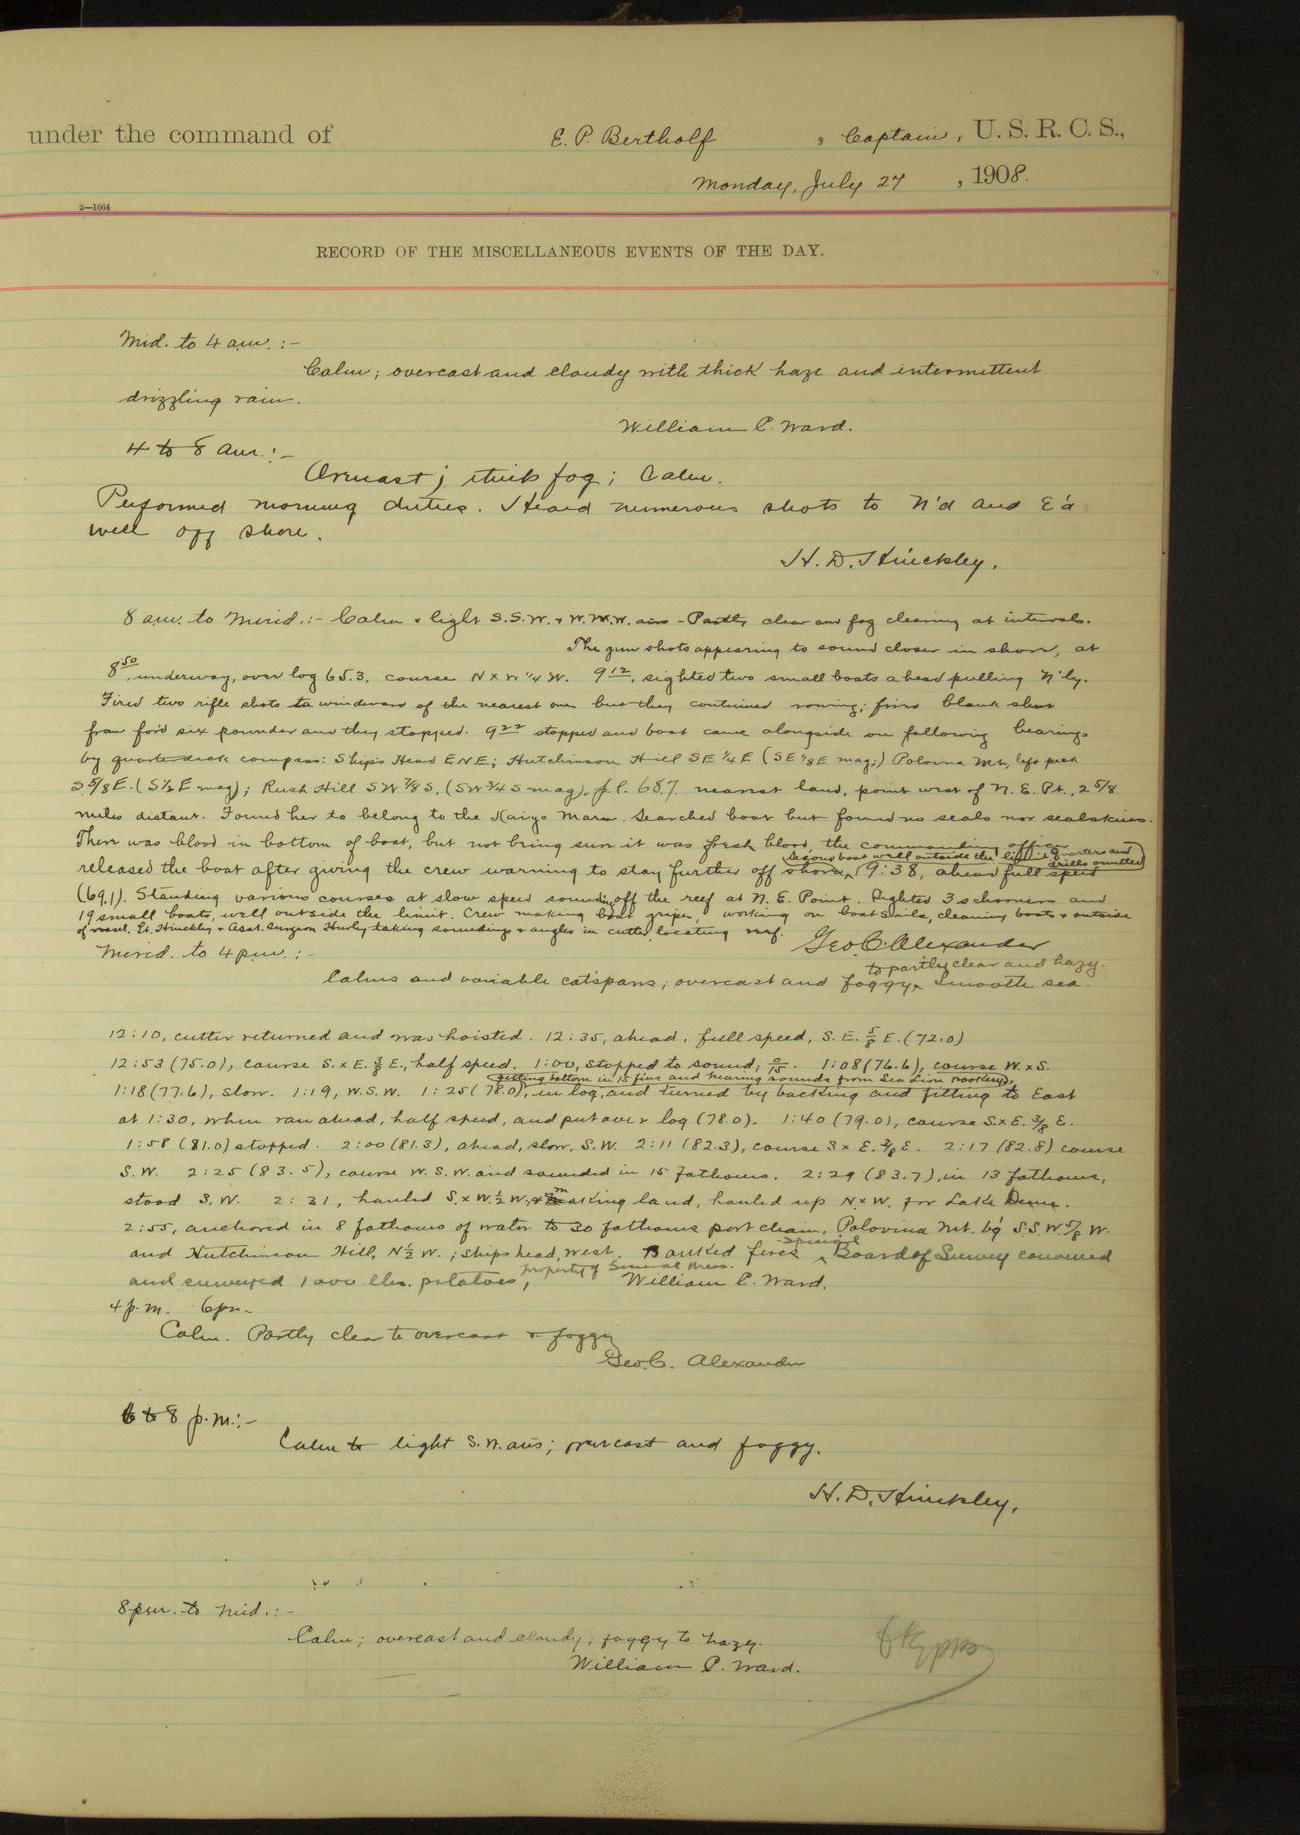 under the command of E. P. Bertholf, Captain, U. S. R. C. S.,
Monday, July 27, 1908.
2—1664
RECORD OF THE MISCELLANEOUS EVENTS OF THE DAY.
Mid. to 4 a.m.:-
Calm; overcast and cloudy with thick haze and intermittent
drizzling rain.
William P. Ward.
4 to 8 a.m.:-
Overcast; thick fog; Calm.
Performed morning duties. Heard numerous shots to N'd and E'd
well off shore.
H. D. Hinckley.
8 a.m. to Merid.:- Calm & light S.S.W. & W.N.W. airs - Partly clear and fog clearing at intervals.
The gun shots appearing to sound closer in shore, at
8 50, underway, over log 65.3, course N x W 1/4 W. 9 12, sighted two small boats ahead pulling N'ly.
Fired two rifle shots to windward of the nearest one but they continued rowing; fired blank shot
from for'd six pounder and they stopped. 9 22 stopped and boat came alongside on following bearings
by quarterdeck compass: Ship's Head ENE; Hutchinson Hill SE 1/4 E (SE 1/8 E mag;) Polovina Mt., left peak
S 5/8 E. (S 1/2 E mag); Rush Hill SW 7/8 S. (SW 3/4 S mag). p.l. 68.7. nearest land, point west of N. E. Pt., 2 5/8
miles distant. Found her to belong to the Kaiyo Maru. Searched boat but found no seals nor sealskins.
There was blood in bottom of boat, but not being sure it was fresh blood, the commanding officer
Second boat well outside the limit Quarters and
drills omitted
released the boat after giving the crew warning to stay further off shore. 9:38, ahead full speed
(69.1). Standing various courses at slow speed sounding off the reef at N. E. Point. Sighted 3 schooners and
19 small boats, well outside the limit. Crew making boat gripes, working on boat sails, cleaning boats & outside
of vessel. Lt. Hinckley & Asst. Surgeon Hurley taking soundings & angles in cutter locating reef.
Geo. C. Alexander
Merid. to 4 p.m.:-
to partly clear and hazy.
Calms and variable catspaws; overcast and foggy Smooth sea.
12:10, cutter returned and was hoisted. 12:35, ahead, full speed, S. E. 5/8 E. (72.0)
12:53 (75.0), course S. x E. 3/8 E., half speed. 1:00, stopped to sound, 0/15. 1:08 (76.6), course W. x S.
getting bottom in 15 fms and hearing sounds from Sea Lion rookery,
1:18 (77.6), slow. 1:19, W.S.W. 1:25 (78.0), in log, and turned by backing and filling to East
at 1:30, when ran ahead, half speed, and put over log (78.0). 1:40 (79.0), course S. x E. 3/8 E.
1:58 (81.0) stopped. 2:00 (81.3), ahead, slow, S.W. 2:11 (82.3), course S x E. 3/8 E. 2:17 (82.8) course
S.W. 2:25 (83.5), course W. S. W. and sounded in 15 fathoms. 2:29 (83.7), in 13 fathoms,
stood S. W. 2:31, hauled S. x W. 1/2 W., & making land, hauled up N x W. for Lake Dune.
2:55, anchored in 8 fathoms of water to 30 fathoms port chain. Polovina Mt. b'g S.S.W. 5/8 W.
and Hutchinson Hill, N 1/2 W.; ships head, West. Banked fires. Special Board of Survey convened
and surveyed 1000 lbs. potatoes, property of General Mess.
William P. Ward.
4 p.m. 6 p.m.
Calm. Partly clear to overcast & foggy
Geo. C. Alexander
6 to 8 p.m.:-
Calm to light S.W. airs; overcast and foggy.
H. D. Hinckley.
8 p.m. to Mid.:-
Calm; overcast and cloudy; foggy to hazy.
William P. Ward.